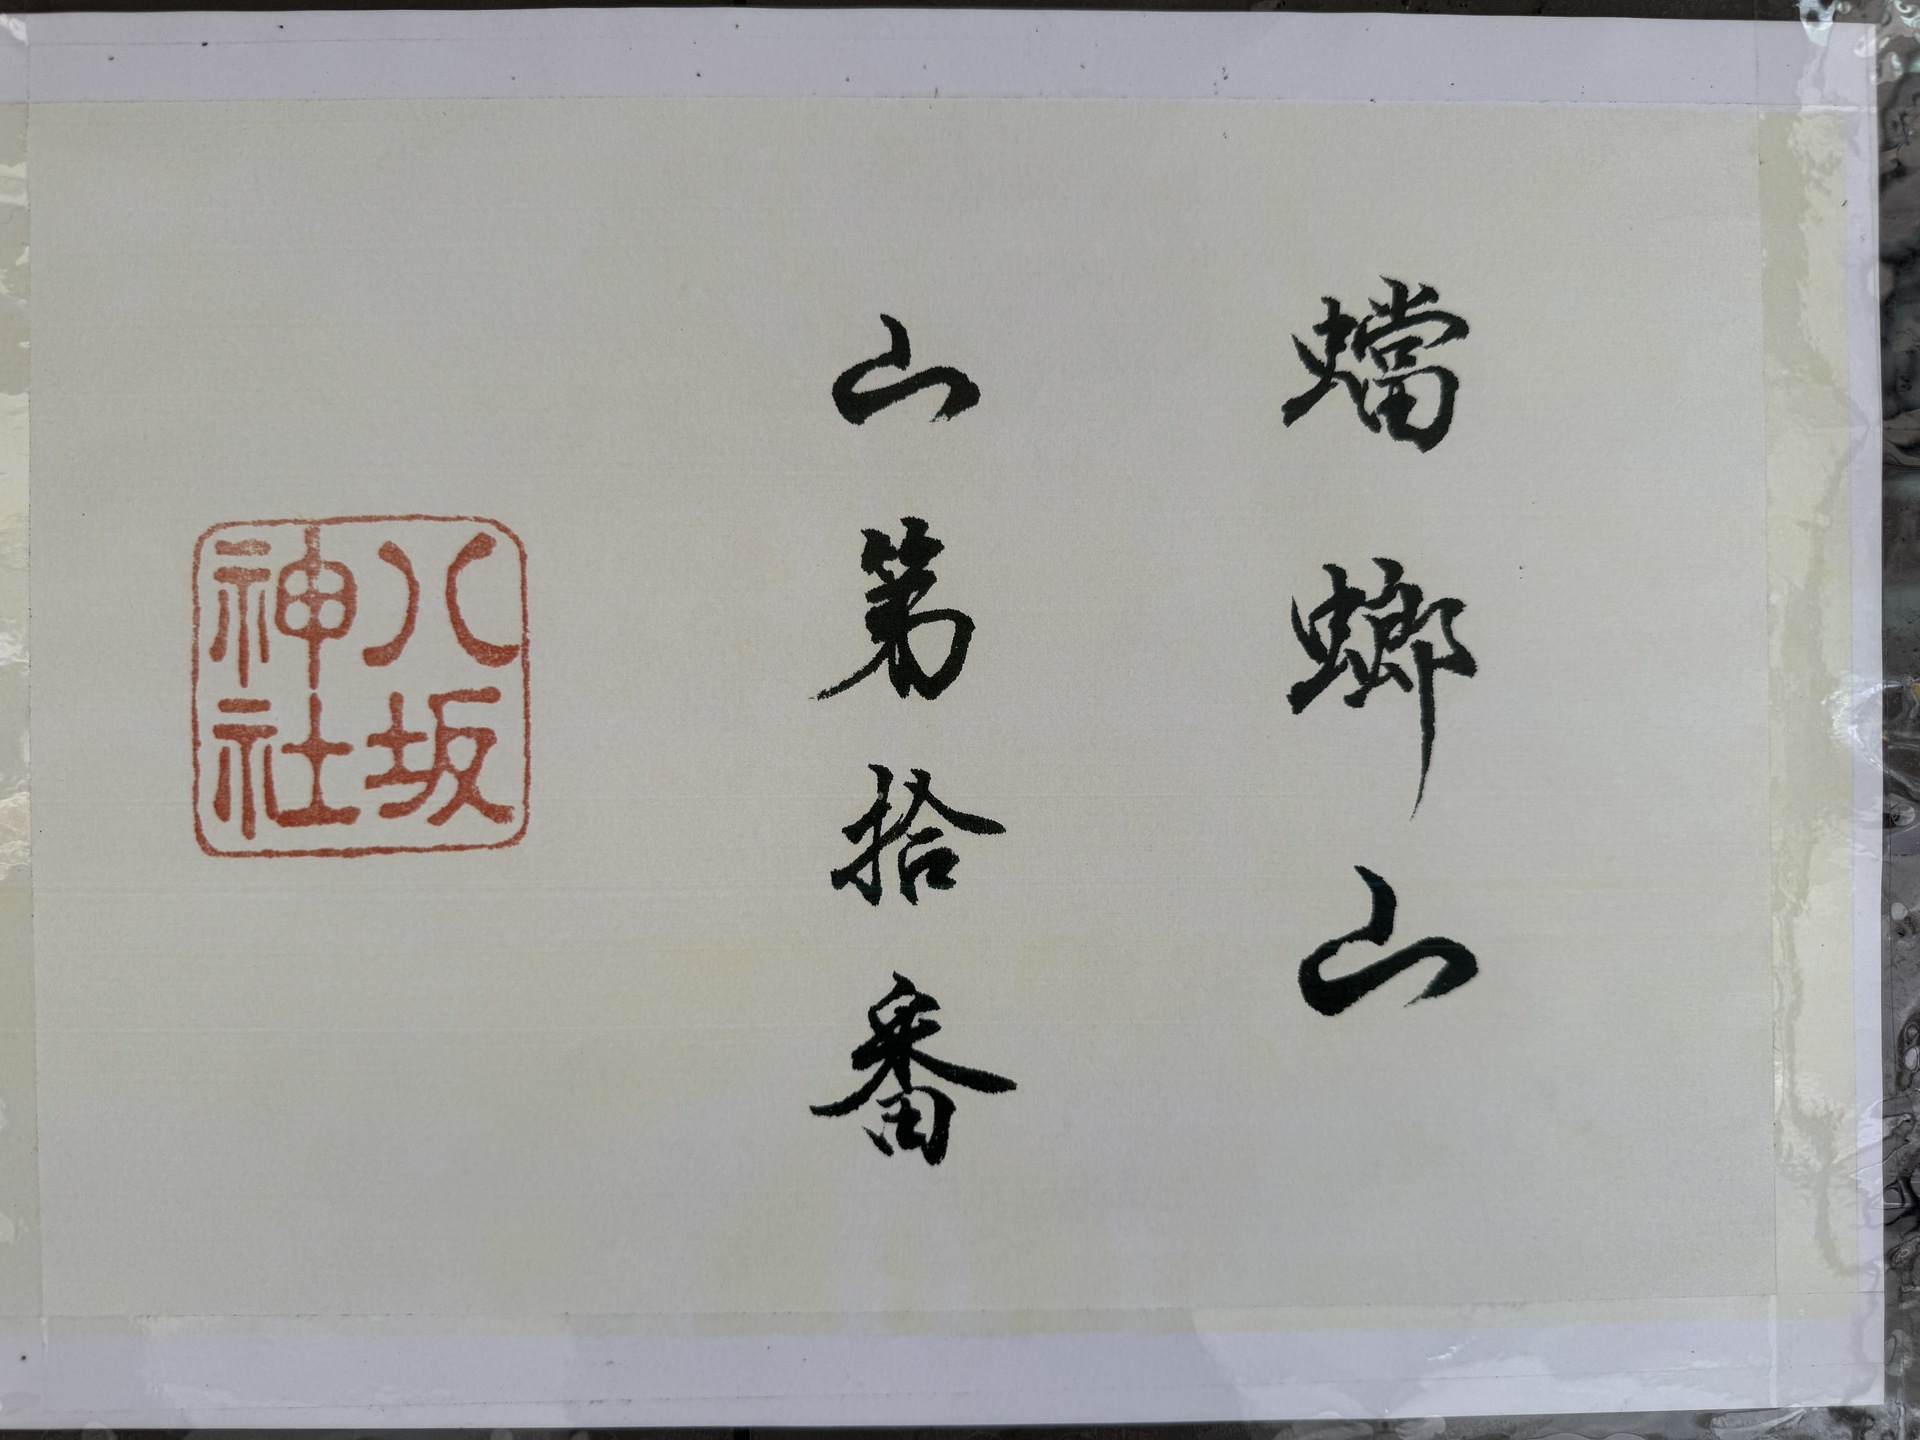 蟷螂山
山第拾番
八坂
神社